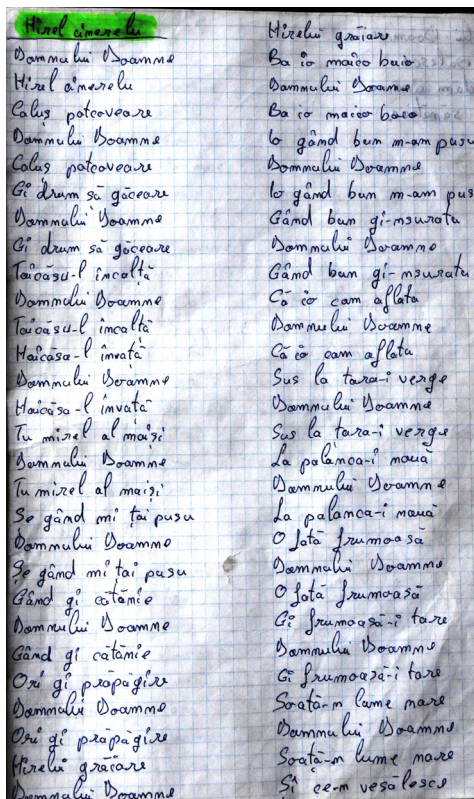 Mirel cinerelu
Domnului Doamne
Mirel cinerelu
Caluș potcoveare
Domnului Doamne
Caluș potcoveare
Gi drum să găceare
Domnului Doamne
Gi drum să găceare
Taicăsu-l încalță
Domnului Doamne
Taicăsu-l încalță
Maicăsa-l învață
Domnului Doamne
Maicăsa-l învață
Tu mirel al maiși
Domnului Doamne
Tu mirel al maiși
Se gând mi țai pusu
Domnului Doamne
Se gând mi țai pusu
Gând gi cătănie
Domnului Doamne
Gând gi cătănie
Ori gi prăpăgire
Domnului Doamne
Ori gi prăpăgire
Mirelui grăiare
Domnului Doamne
Mirelui grăiare
Ba io maico baio
Domnului Doamne
Ba io maico baio
Io gând bun m-am pusu
Domnului Doamne
Io gând bun m-am pus
Gând bun gi-nsuratu
Domnului Doamne
Gând bun gi-nsuratu
Că io cam aflatu
Domnului Doamne
Că io cam aflatu
Sus la tara-i verge
Domnului Doamne
Sus la tara-i verge
La palanca-i nouă
Domnului Doamne
La palanca-i nouă
O fată frumoasă
Domnului Doamne
O fată frumoasă
Gi frumoasă-i tare
Domnului Doamne
Gi frumoasă-i tare
Soață-n lume nare
Domnului Doamne
Soață-n lume nare
Și ce-m vesălescu